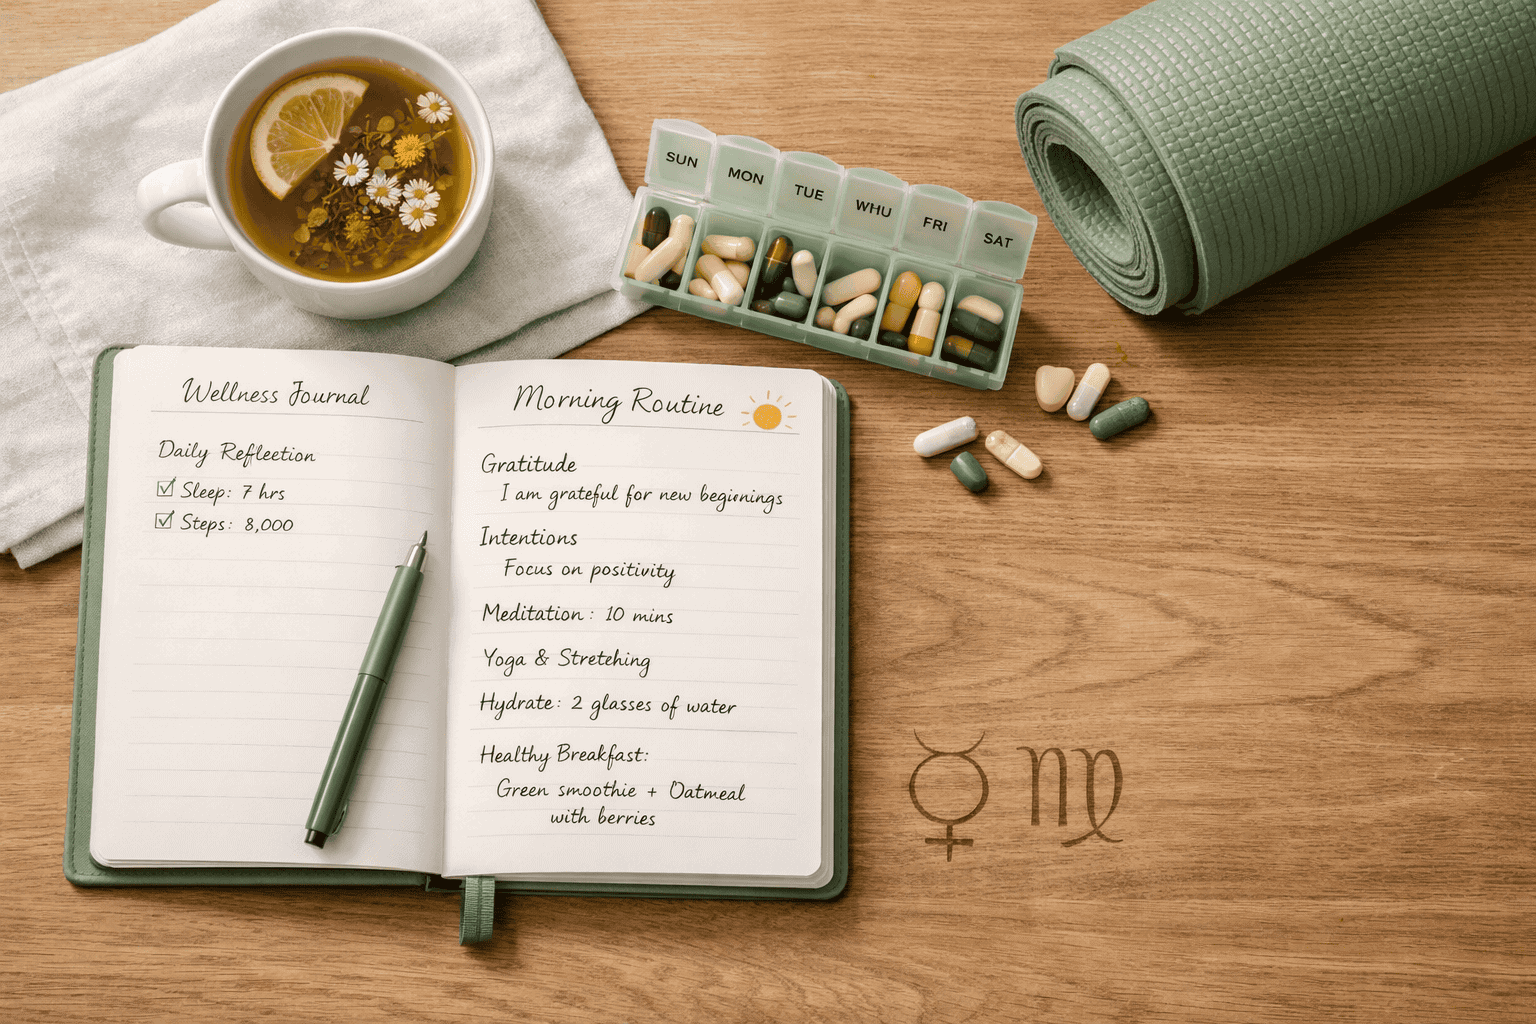 SUN
MON
TUE
WHU
FRI
SAT
Wellness Journal
Daily Refleetion
☑ Sleep: 7 hrs
☑ Steps: 8,000
Morning Routine
Gratitude
I am grateful for new beginings
Intentions
Focus on positivity
Meditation: 10 mins
Yoga & Stretehing
Hydrate: 2 glasses of water
Healthy Breakfast:
Green smoothie + Oatmeal
with berries
☿ ♍